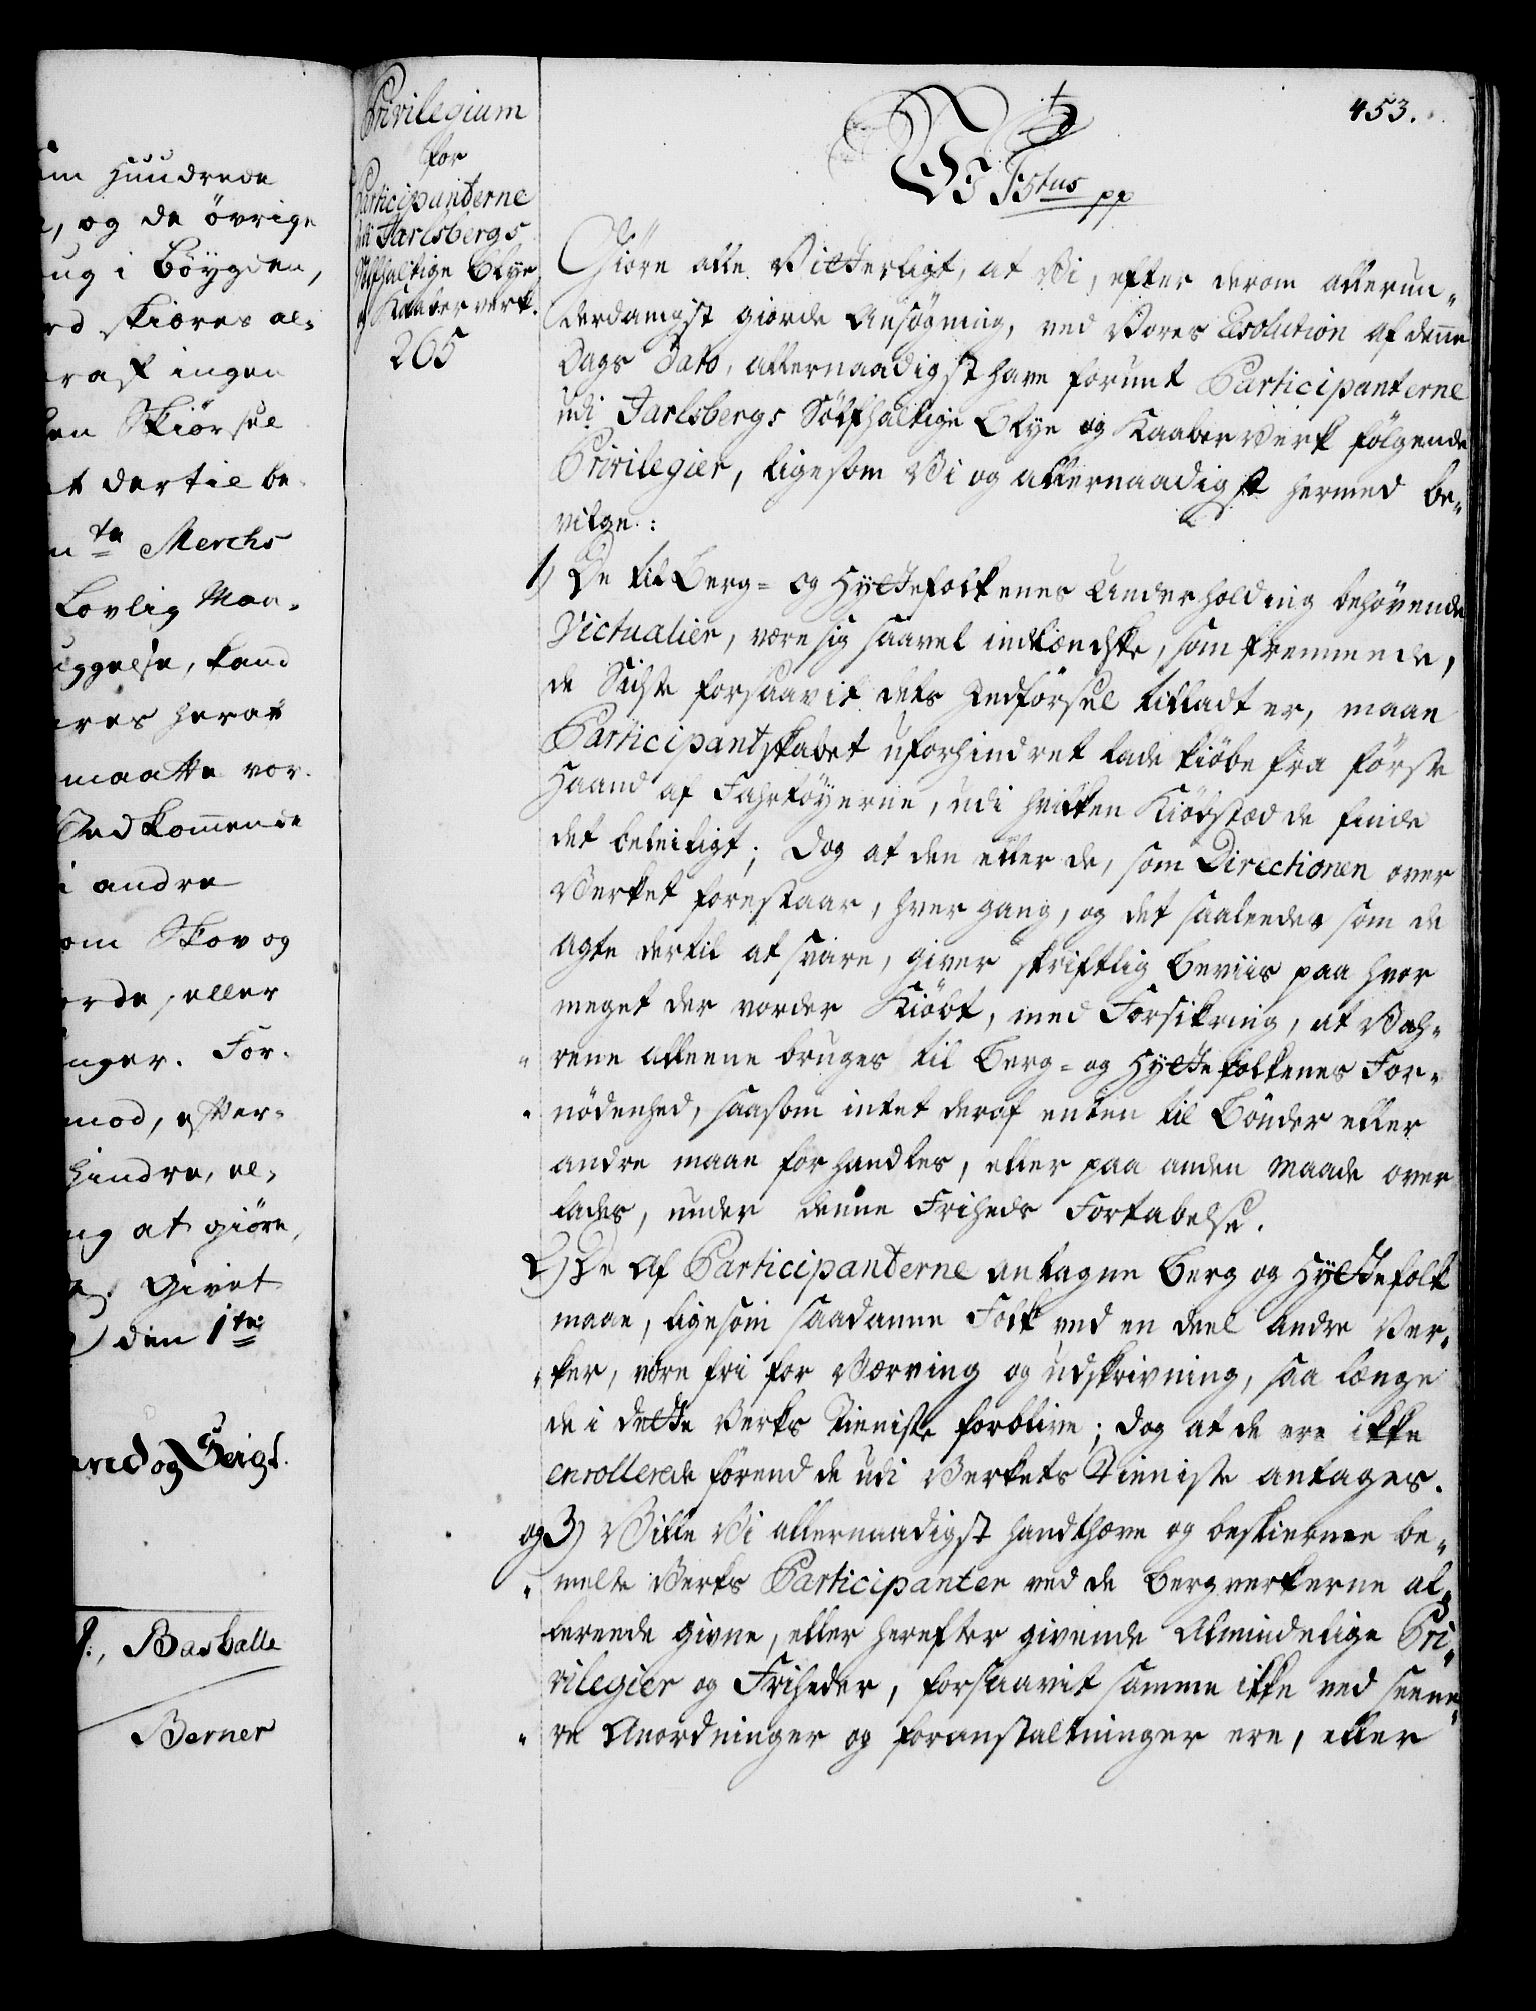 um hundrede
, og de övrige
ug i Böygden,
rd skiæres al-
rast ingen
en Skiörsel
t dertil be-
n te Merchs
Lovlig Maa-
iggelse, kand
eres herat
maatte vor-
Vedkommende
i andre
om Skov og
orde, eller
inger. For-
mod, efter-
hindre, el-
ng at giöre,
Givet
den 1te
og Seigl.
Basballe
Berner
453.
Privilegium
for
Participanterne
udi Jarlsbergs
Sölfhaltige Blye
og Kaaber verk.
265
Giöre alle Vitterligt, at Vi, efter derom allerun-
derdanigst giorde Ansögning, ved Vores Resolution af denne
Dags Dato, allernaadigst have forunt Participanterne
udi Jarlsbergs Sölfhaltige Blye og Kaaber Verk fölgende
Privilegier, ligesom Vi og allernaadigst hermed be-
vilge:
1) De til Berg- og Hyttefolkenes Underholdning behövende
Victualier, være sig saavel indlændske, som fremmede,
de Sidste forsaavit dets Indförsel tilladt er, maae
Participantskabet uforhindret lade kiöbe fra förste
Haand af Fahrtöyerne, udi hvilken Kiöbstæd de finde
det beleiligt; Dog at den eller de, som Directionen over
Verket forestaar, hver gang, og det saaleedes som de
agte dertil at svare, giver skriftlig Beviis paa hvor
meget der vorder Kiöbt, med Forsikring, at Vah-
rene alleene bruges til Berg- og Hyttefolkenes For-
nödenhed, saasom intet deraf enten til Bönder eller
andre maae forhandles, eller paa anden Maade over
lades, under denne Friheds Fortabelse.
2) De af Participanterne antagne Berg og Hyttefolk
maae, ligesom saadanne Folk ved en deel andre Ver-
ker, være fri for Værving og Udskrivning, saa længe
de i dette Verks Tieniste forblive; Dog at de ere ikke
enrollerede förend de udi Verkets Tieniste antages.
og 3) Ville Vi allernaadigst handthæve og beskierme be-
melte Verks Participanter ved de Bergverkerne al-
lereede givne, eller herefter givende Almindelige Pri-
vilegier og Friheder, forsaavit samme ikke ved seene-
re Anordninger og Foranstaltninger ere, eller